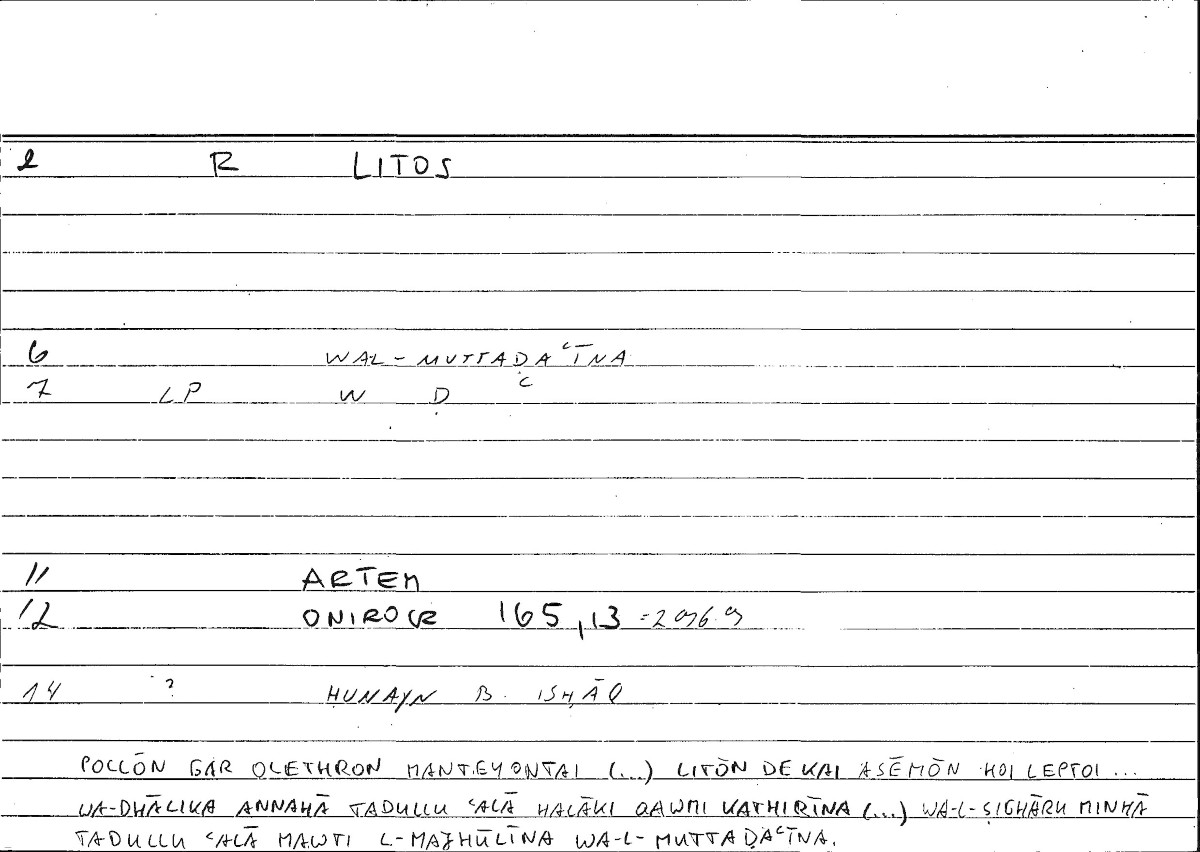 2 R LITOS
6 WAL-MUTTAḌAʿĪNA
7 LP W Ḍ ʿ
11 ARTEM
12 ONIROCR 165,13
14 ? ḤUNAYN B. ISḤĀQ
POLLŌN GAR OLETHRON MANTEYONTAI (...) LITŌN DE KAI ASĒMŌN HOI LEPTOI ...
WA-DHĀLIKA ANNAHĀ TADULLU ʿALĀ HALĀKI QAWMI KATHIRĪNA (...) WA-L-ṢIGHĀRU MINHĀ
TADULLU ʿALĀ MAWTI L-MAJHŪLĪNA WA-L-MUTTAḌAʿĪNA.